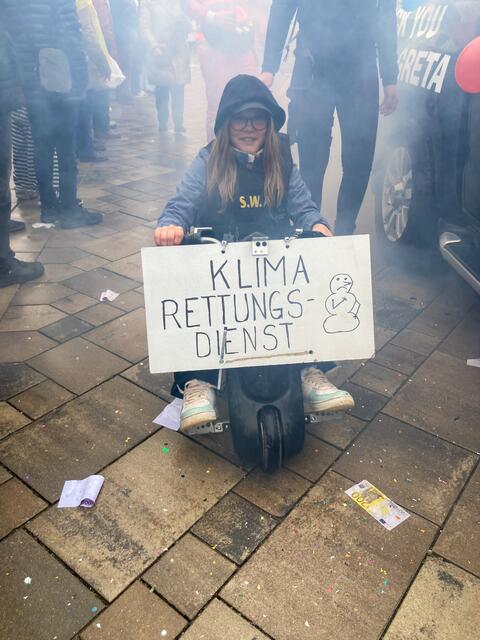 CK YOU
GRETA
S.W.
KLIMA
RETTUNGS-
DIENST
200